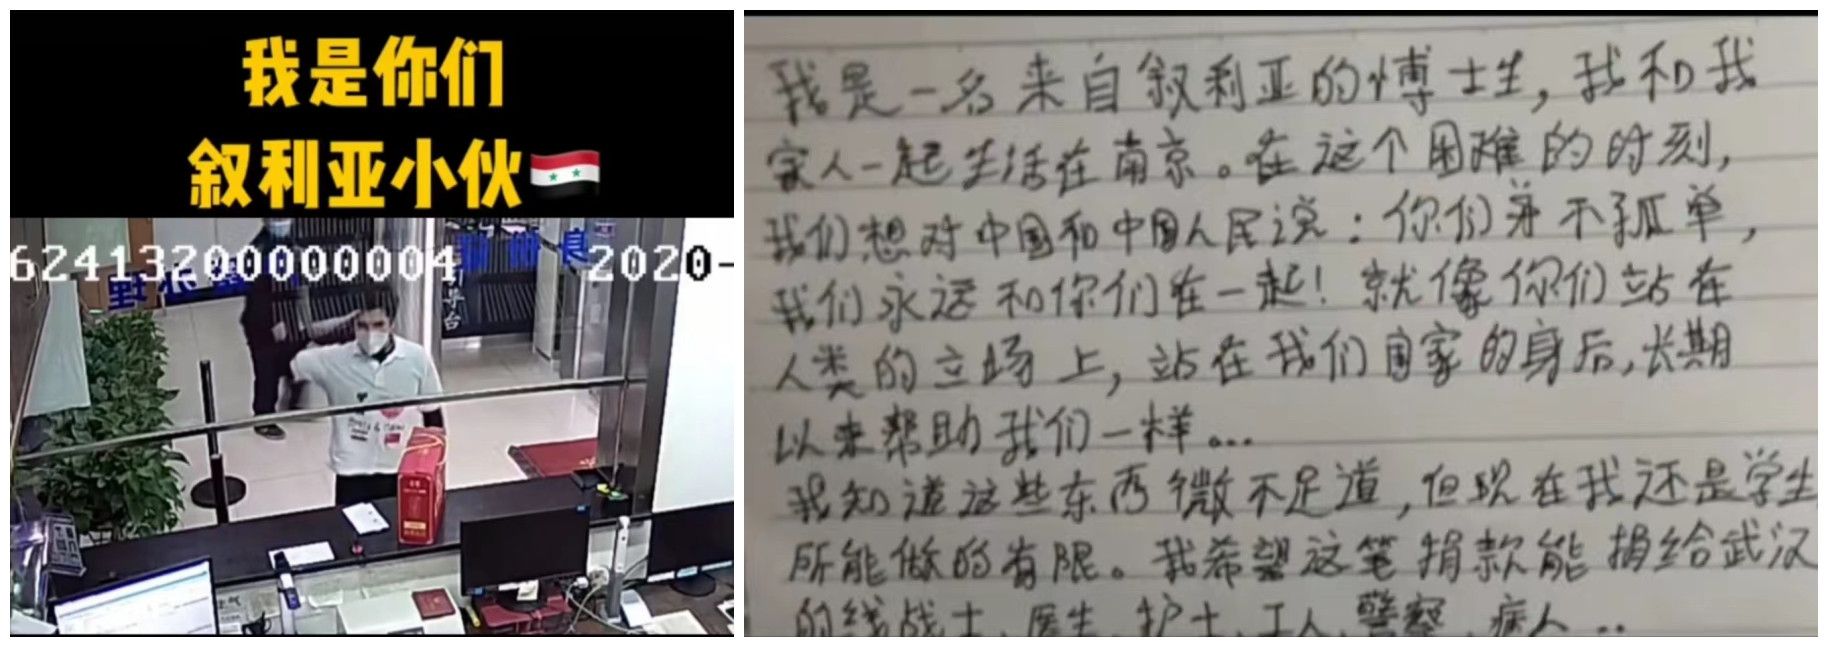 我是你们
叙利亚小伙
62413200000000004
2020-
台
我是一名来自叙利亚的博士生，我和我
家人一起生活在南京。在这个困难的时刻，
我们想对中国和中国人民说：你们并不孤单，
我们永远和你们在一起！就像你们站在
人类的立场上，站在我们国家的身后，长期
以来帮助我们一样。...
我知道这些东西微不足道，但现在我还是学生
所能做的有限。我希望这笔捐款能捐给武汉
的线战士、医生、护士、工人、警察、病人...